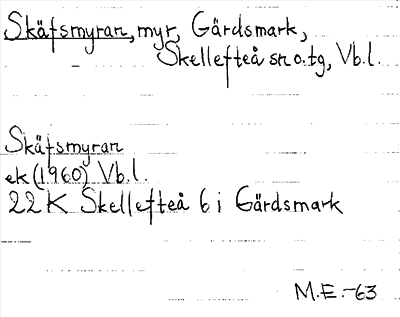 Skäfsmyran, myr, Gärdsmark,
Skellefteå sn o. tg, Vb. l.
Skäfsmyran
ek (1960) Vb. l.
22 K Skellefteå 6 i Gärdsmark
M.E. -63